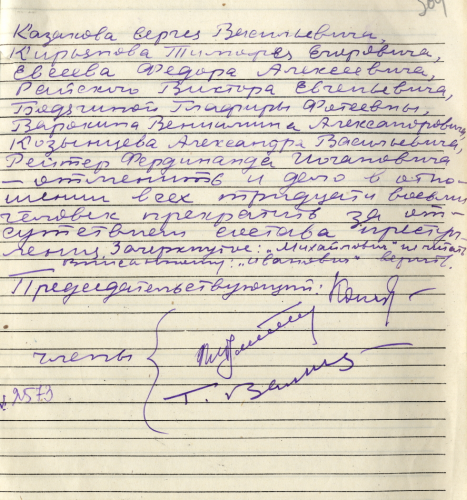 304
Казакова Сергея Васильевича,
Кирьянова Тимофея Егоровича,
Евсеева Федора Алексеевича,
Райского Виктора Евгеньевича,
Бодягиной Глафиры Фотеевны,
Варокина Вениамина Александровича,
Козынцева Александра Васильевича,
Рейтер Фердинанда Иогановича
— отменить и дело в отно-
шении всех тридцати восьми
человек прекратить за от-
сутствием состава преступ-
ления. Зачеркнутое: „Михайлович" не читать
вписанному: „Иванович" верить.
Председательствующий:
члены
2573